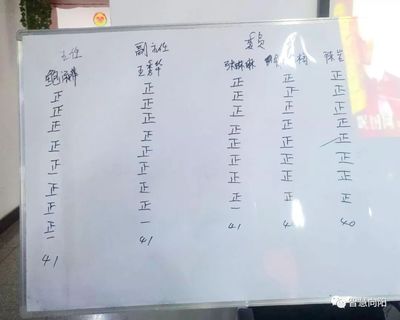 主任 副主任 委员
王秀华 张琳琳 陈岩
正 正 正 正 正
正 正 正 正 正
正 正 正 正 正
正 正 正 正 正
正 正 正 正 正
正 正 正 正 正
正 正 正 正 正
正 正 正 正 正
一 一 一
41 41 41 4 40
智慧向阳